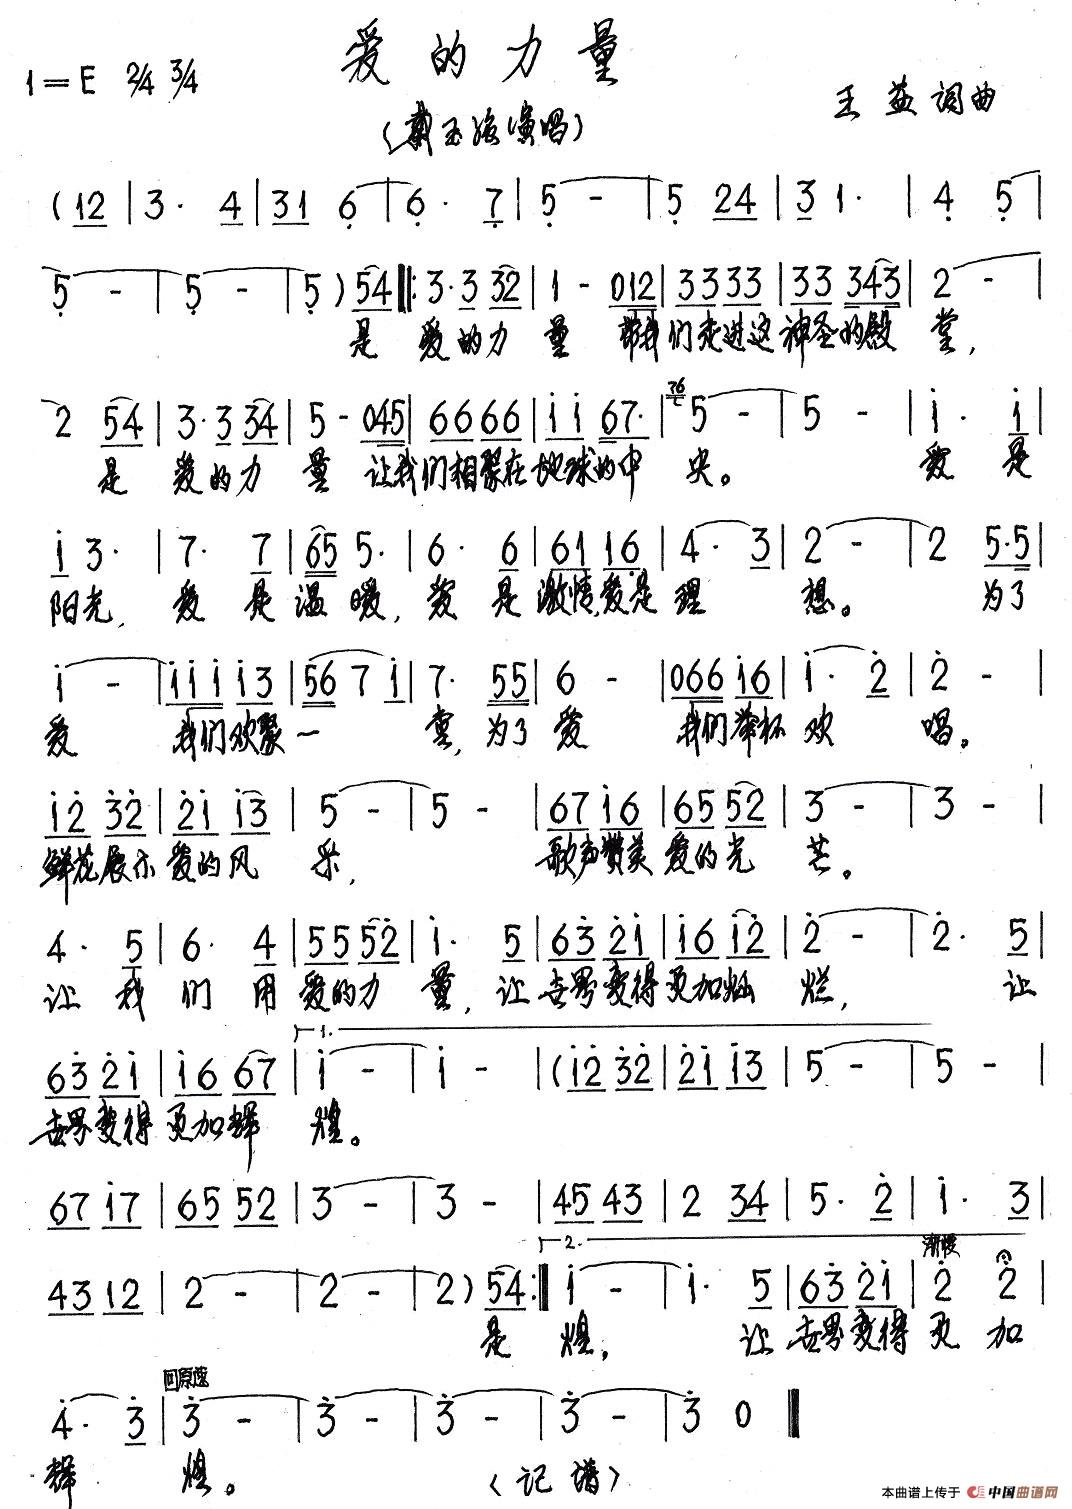 爱的力量
1=E 2/4 3/4
王益 词曲
(戴玉强演唱)
(12 | 3· 4 | 31 6 | 6· 7 | 5 - | 5 24 | 3 1· | 4 5 |
5 - | 5 - | 5 ) 54 ‖: 3·3 32 | 1 - 012 | 33 33 | 33 343 | 2 - |
是 爱的力 量 带我们走进这神圣的殿 堂,
2 54 | 3·3 34 | 5 - 045 | 66 66 | i i 67· | 5 - | 5 - | i· i |
是 爱的力 量 让我们相聚在地球的中 央。 爱 是
i 3· | 7· 7 | 65 5· | 6· 6 | 61 16 | 4· 3 | 2 - | 2 5·5 |
阳光, 爱 是 温 暖, 爱 是 激情,爱是 理 想。 为了
i - | i i i i 3 | 56 7 i | 7· 55 | 6 - | 066 i6 | i· 2 | 2 - |
爱 我们欢聚一 堂, 为了 爱 我们举杯 欢 唱。
i2 32 | 2i i3 | 5 - | 5 - | 67 i6 | 65 52 | 3 - | 3 - |
鲜花展示爱的风 采, 歌声赞美 爱的光 芒。
4· 5 | 6· 4 | 55 52 | i· 5 | 63 2i | i6 i2 | 2 - | 2· 5 |
让 我 们 用 爱的力 量, 让 世界变得更加灿 烂, 让
1.
63 2i | i6 67 | i - | i - | (i2 32 | 2i i3 | 5 - | 5 - |
世界变得 更加辉 煌。
67 i7 | 65 52 | 3 - | 3 - | 45 43 | 2 34 | 5· 2 | i· 3 |
2. 渐慢
43 12 | 2 - | 2 - | 2 ) 54 :‖ i - | i· 5 | 63 2i | 2 2 |
是 煌, 让 世界变得 更 加
回原速
4· 3 | 3 - | 3 - | 3 - | 3 - | 3 0 ‖
辉 煌。 (记谱)
本曲谱上传于 中国曲谱网